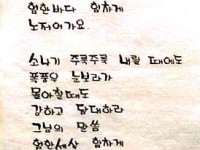 험한바다 힘차게
노저어가요.
소나기 주룩주룩 내릴 때에도
폭풍우 눈보라가
몰아칠때도
강하고 담대하라
그님의 말씀
험한세상 힘차게